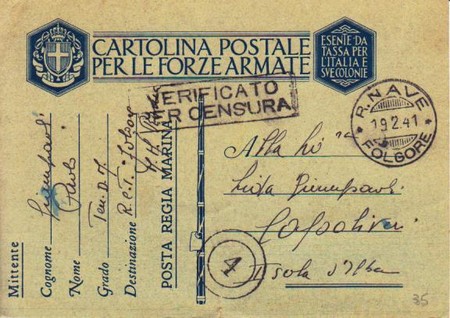 CARTOLINA POSTALE
PER LE FORZE ARMATE
ESENTE DA
TASSA PER
L'ITALIA E
SVE COLONIE
VERIFICATO
PER CENSURA
R. NAVE
19.2.41
FOLGORE
Mittente
Cognome
Nome Paolo
Grado Ten. D.M.
Destinazione R. C.T. Folgore
POSTA REGIA MARINA
Alla
Capoliveri
Isola d'Elba
4
35